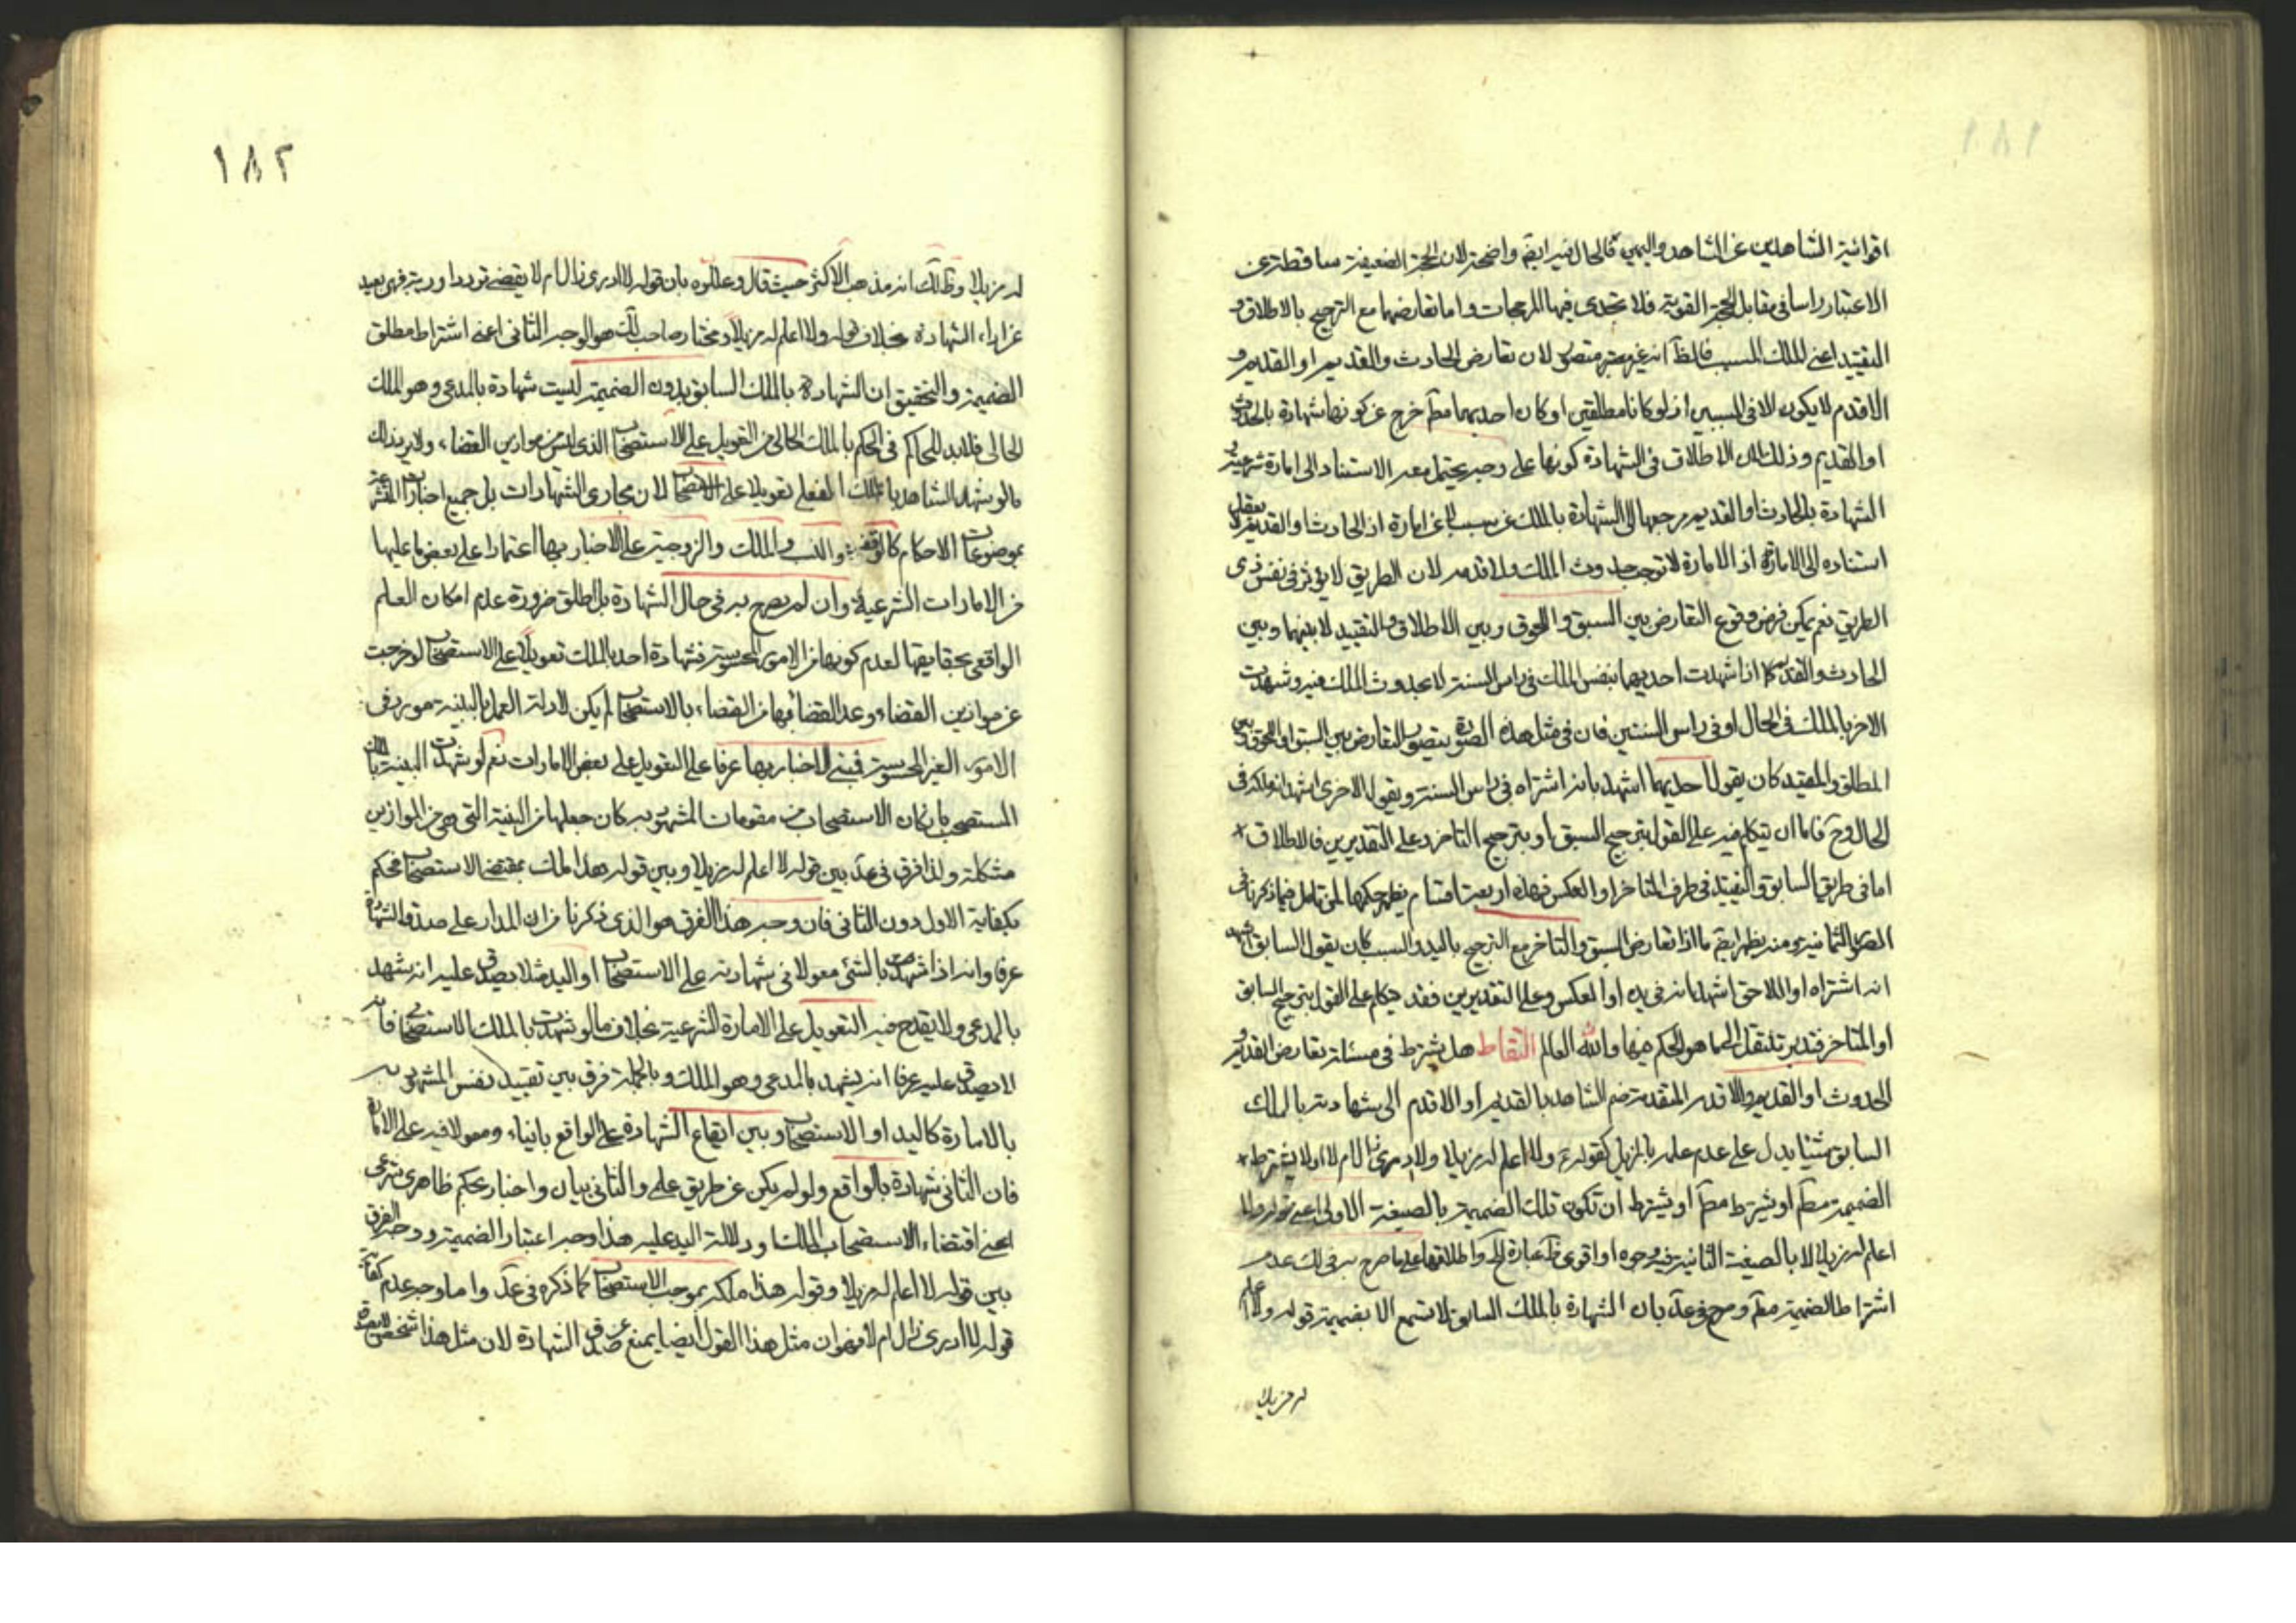 ١٨١
اقوائية الشاهدين عن الشاهد واليمين فالحال فيه ايضا واضحة لان الحجة الضعيفة ساقطة عن
الاعتبار راسا فى مقابل الحجة القوية فلا تجدى فيها المرجحات واما تعارضهما مع الترجيح بالاطلاق و
التقييد اعنى الملك السبب فالظ انه غير متصور لان تعارض الحادث والقديم او القديم و
الاقدم لا يكون الا فى السببين اذ لو كانا مطلقين او كان احديهما مط خرج عن كونها شهادة بالحدوث
او القديم وذلك لان الاطلاق فى الشهادة كونها على وجه يحتمل معه الاستناد الى امارة شرعية و
الشهادة بالحادث والقديم مرجعها الى الشهادة بالملك عن سبب لا عن امارة اذ الحادث والقديم لا يعقل
استناده الى الامارة اذ الامارة لا توجب حدوث الملك ولا قدمه لان الطريق لا يؤثر فى نفس ذى
الطريق نعم يمكن فرض وقوع التعارض بين السبق واللحوق وبين الاطلاق والتقييد لا بينهما وبين
الحادث والقديم كما اذا شهدت احديهما بنفس الملك فى راس السنة لا بحدوث الملك فيه وشهدت
الاخر بالملك فى الحال او فى راس السنتين فان فى مثل هذه الصورة يتصور التعارض بين السبق واللحوق وبين
المطلق والمقيد كان يقول احديهما اشهد بانه اشتراه فى راس السنة ويقول الاخرى اشهد انه ملكه فى
الحال وح فاما ان يتكلم فيه على القول بترجيح السبق او بترجيح التاخر وعلى التقديرين فالاطلاق
اما فى طريق السابق والتقييد فى طرف المتاخر او العكس فهذه اربعة اقسام يظهر حكمها لمن تامل فيما ذكرنا فى
الصور الثمانية ومنه يظهر ايضا ما اذا تعارض السبق والتاخر مع الترجيح باليد والسبب كان يقول السابق اشهد
انه اشتراه او اللاحق اشهد انه فى يده او العكس وعلى التقديرين فقد يتكلم على القول بترجيح السابق
او المتاخر فتدبر تنتقل الى ما هو الحكم فيها والله العالم التقاط هل يشترط فى مسئلة تعارض القديم و
الحدوث او القديم والاقدم المتقدمة ضم الشاهد بالقديم او الاقدم الى شهادته بالملك
السابق شيئا يدل على عدم علمه بالمزيل كقوله ولا اعلم له مزيلا ولا ادرى زال ام لا او لا يشترط
الضميمة مط او يشترط مط او يشترط ان تكون تلك الضميمة بالصيغة الاولى اعنى قوله ولا
اعلم له مزيلا لا بالصيغة الثانية فيه وجوه او اقوى عبارة واطلاقها على ما صرح به فى لك عدم
اشتراط الضميمة مط وصرح فى عد بان الشهادة بالملك السابق لا تسمع الا بضميمة قوله ولا اعلم
له مزيلا
١٨٢
له مزيلا وظ لك انه مذهب الاكثر حيث قال وعللوه بان قوله لا ادرى زال ام لا يقتضى ترددا وريبة فهى بعيد
عن اداء الشهادة بخلاف قوله ولا اعلم له مزيلا ومختار صاحب لك هو الوجه الثانى اعنى اشتراط مطلق
الضميمة والتحقيق ان الشهادة بالملك السابق بدون الضميمة ليست شهادة بالمدعى وهو الملك
الحالى فلابد للحاكم فى الحكم بالملك الحالى من التعويل على الاستصحاب الذى ليس من موازين القضاء ولا يرد ذلك
ما لو شهد الشاهد بالملك الفعلى تعويلا على الاستصحاب لان مجارى الشهادات بل جميع اخبارات
بموضوعات الاحكام كالوقفية والنسب والملك والزوجية على الاخبار بها اعتمادا على بعض ما عليها
من الامارات الشرعية وان لم يصرح به فى حال الشهادة بل اطلق ضرورة عدم امكان العلم
الواقعى بحقايقها لعدم كونها من الامور المحسوسة فشهادة احد بالملك تعويلا على الاستصحاب لو خرجت
عن موازين القضاء وعد القضاء بها من القضاء بالاستصحاب لم يكن لادلة العمل بالبينة مورد فى
الامور الغير المحسوسة فيبتنى الاخبار بها عرفا على التعويل على بعض الامارات نعم لو شهدت البينة بالملك
المستصحب بان كان الاستصحاب من مقومات المشهود به كان جعلها من البينة التى هى من الموازين
مشكلة ولذا فرق فى عد بين قوله لا اعلم له مزيلا وبين قوله هذا الملك بمقتضى الاستصحاب فحكم
بكفاية الاول دون الثانى فان وجه هذا الفرق هو الذى ذكرنا من ان المدار على صدق الشهادة
عرفا وانه اذا شهد بالشئ معولا فى شهادته على الاستصحاب او اليد مثلا يصدق عليه انه شهد
بالمدعى ولا يقدح فيه التعويل على الامارة الشرعية بخلاف ما لو شهدت بالملك الاستصحابى فانه
لا يصدق عليه عرفا انه يشهد بالمدعى وهو الملك وبالجملة فرق بين تقييد نفس المشهود به
بالامارة كاليد او الاستصحاب وبين ايقاع الشهادة على الواقع بانياء ومعولا فيه على الامارة
فان الثانى شهادة بالواقع ولو لم يكن عن طريق علمى والثانى بيان واخبار بحكم ظاهرى شرعى
اعنى اقتضاء الاستصحاب الملك او دلالة اليد عليه هذا وجه اعتبار الضميمة ووجه الفرق
بين قوله لا اعلم له مزيلا وقوله هذا ملكه بموجب الاستصحاب كما ذكره فى عد واما وجه عدم كفاية
قوله لا ادرى زال ام لا فهو ان مثل هذا القول ايضا يمنع عن صدق الشهادة لان مثل هذا الشخص